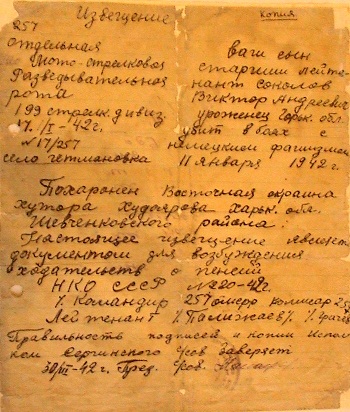 Извещение
копия
257
отдельная
Мото-стрелковая
Разведывательная
рота
199 стрелк. дивиз.
17. I - 42 г.
№17/257
село Гетмановка
Ваш сын
старший лейте-
нант Соколов
Виктор Андреевич
уроженец Горьк. обл.
убит в боях с
немецким фашизмом
11 января 1942 г.
Похоронен Восточная окраина
хутора Худоярова Харьк. обл.
Шевченковского района.
Настоящее извещение является
документом для возбуждения
ходательств о пенсии
НКО СССР №220-42 г.
Командир 257 отмсрр комисар 25
Лейтенант
Правильность подписей и копии Испол
ком Сергинского с/сов заверяет
30/III-42 г. Пред. с/сов.